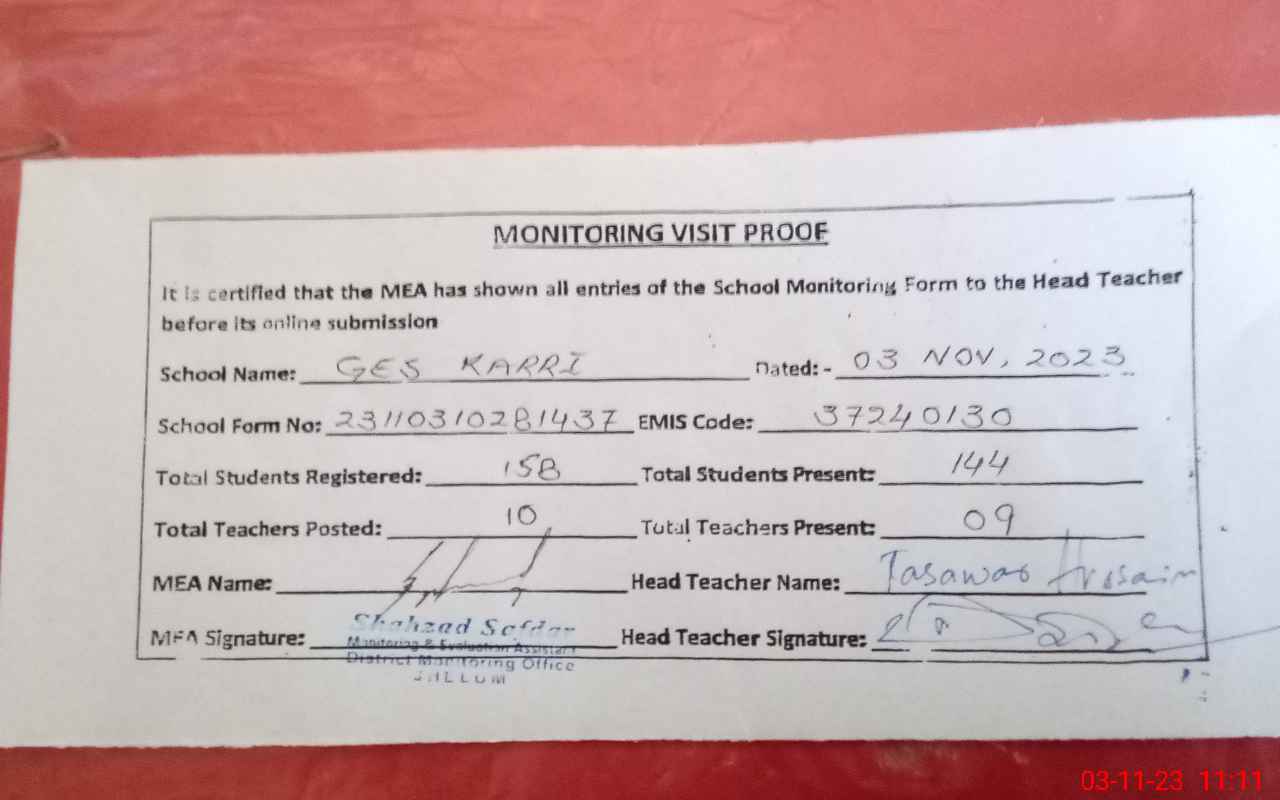 MONITORING VISIT PROOF
It is certified that the MEA has shown all entries of the School Monitoring Form to the Head Teacher
before its online submission
School Name: GES KARRI Dated: - 03 NOV, 2023
School Form No: 23110310281437 EMIS Code: 37240130
Total Students Registered: 158 Total Students Present: 144
Total Teachers Posted: 10 Total Teachers Present: 09
MEA Name: Head Teacher Name: Tasawar Hussain
MEA Signature: Head Teacher Signature:
Shahzad Safdar
Monitoring & Evaluation Assistant
District Monitoring Office
JHELUM
03-11-23 11:11